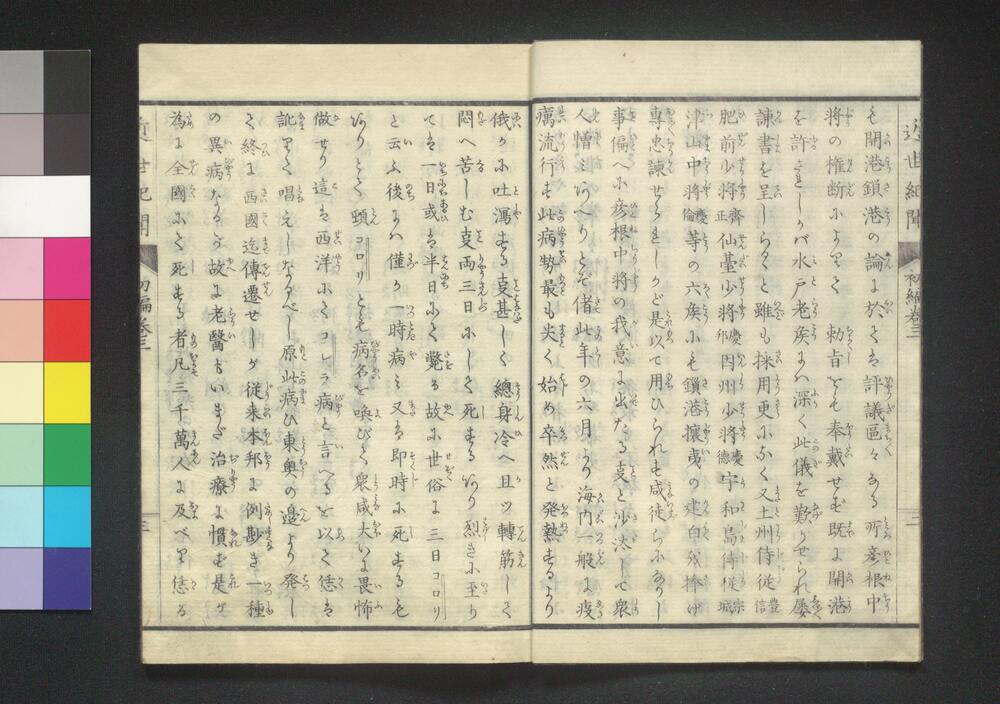 近世紀聞 初編巻三 三
も開港鎖港の論に於ては評議區々なる所彦根中
将の権断によりて 勅旨をも奉戴せず既に開港
を許されしかバ水戸老矦にハ深く此儀を歎かせられ屡
諌書を呈しらると雖も採用更になく又土州侍従豊信
肥前少将斉正仙臺少将慶邦因州少将慶徳宇和島侍従宗城
津山中将慶倫等の六矦にも鎖港攘夷の建白を捧げ
専忠諌せられしかど是以て用ひられず咸徒らになりし
事偏へに彦根中将の我意に出たる事と沙汰して衆
人憎ミあへりとぞ偖此年の六月より海内一般に疫
癘流行す此病勢最も尖く始め卒然と発熱するより
俄かに吐瀉する事甚しく總身冷へ且ツ轉筋して
悶へ苦しむ事両三日にして死するあり烈きに至り
てハ一日或ハ半日にて斃る故に世俗に三日コロリ
と云ふ後にハ僅か一時病ミ又ハ即時に死するも
ありとて頓コロリとも病名を喚びて衆咸大いに畏怖
做せり這ハ西洋にてコレラ病と言へるを以て恁は
訛りて唱えしなるべし原此病ひ東奥の邉より発し
て終に西國迄傳遷せしが従来本邦に例尠き一種
の異病なるが故に老醫もいまだ治療に慣ず是が
為に全國にて死する者凡三千萬人に及べり恁る
近世紀聞 初編巻三 三